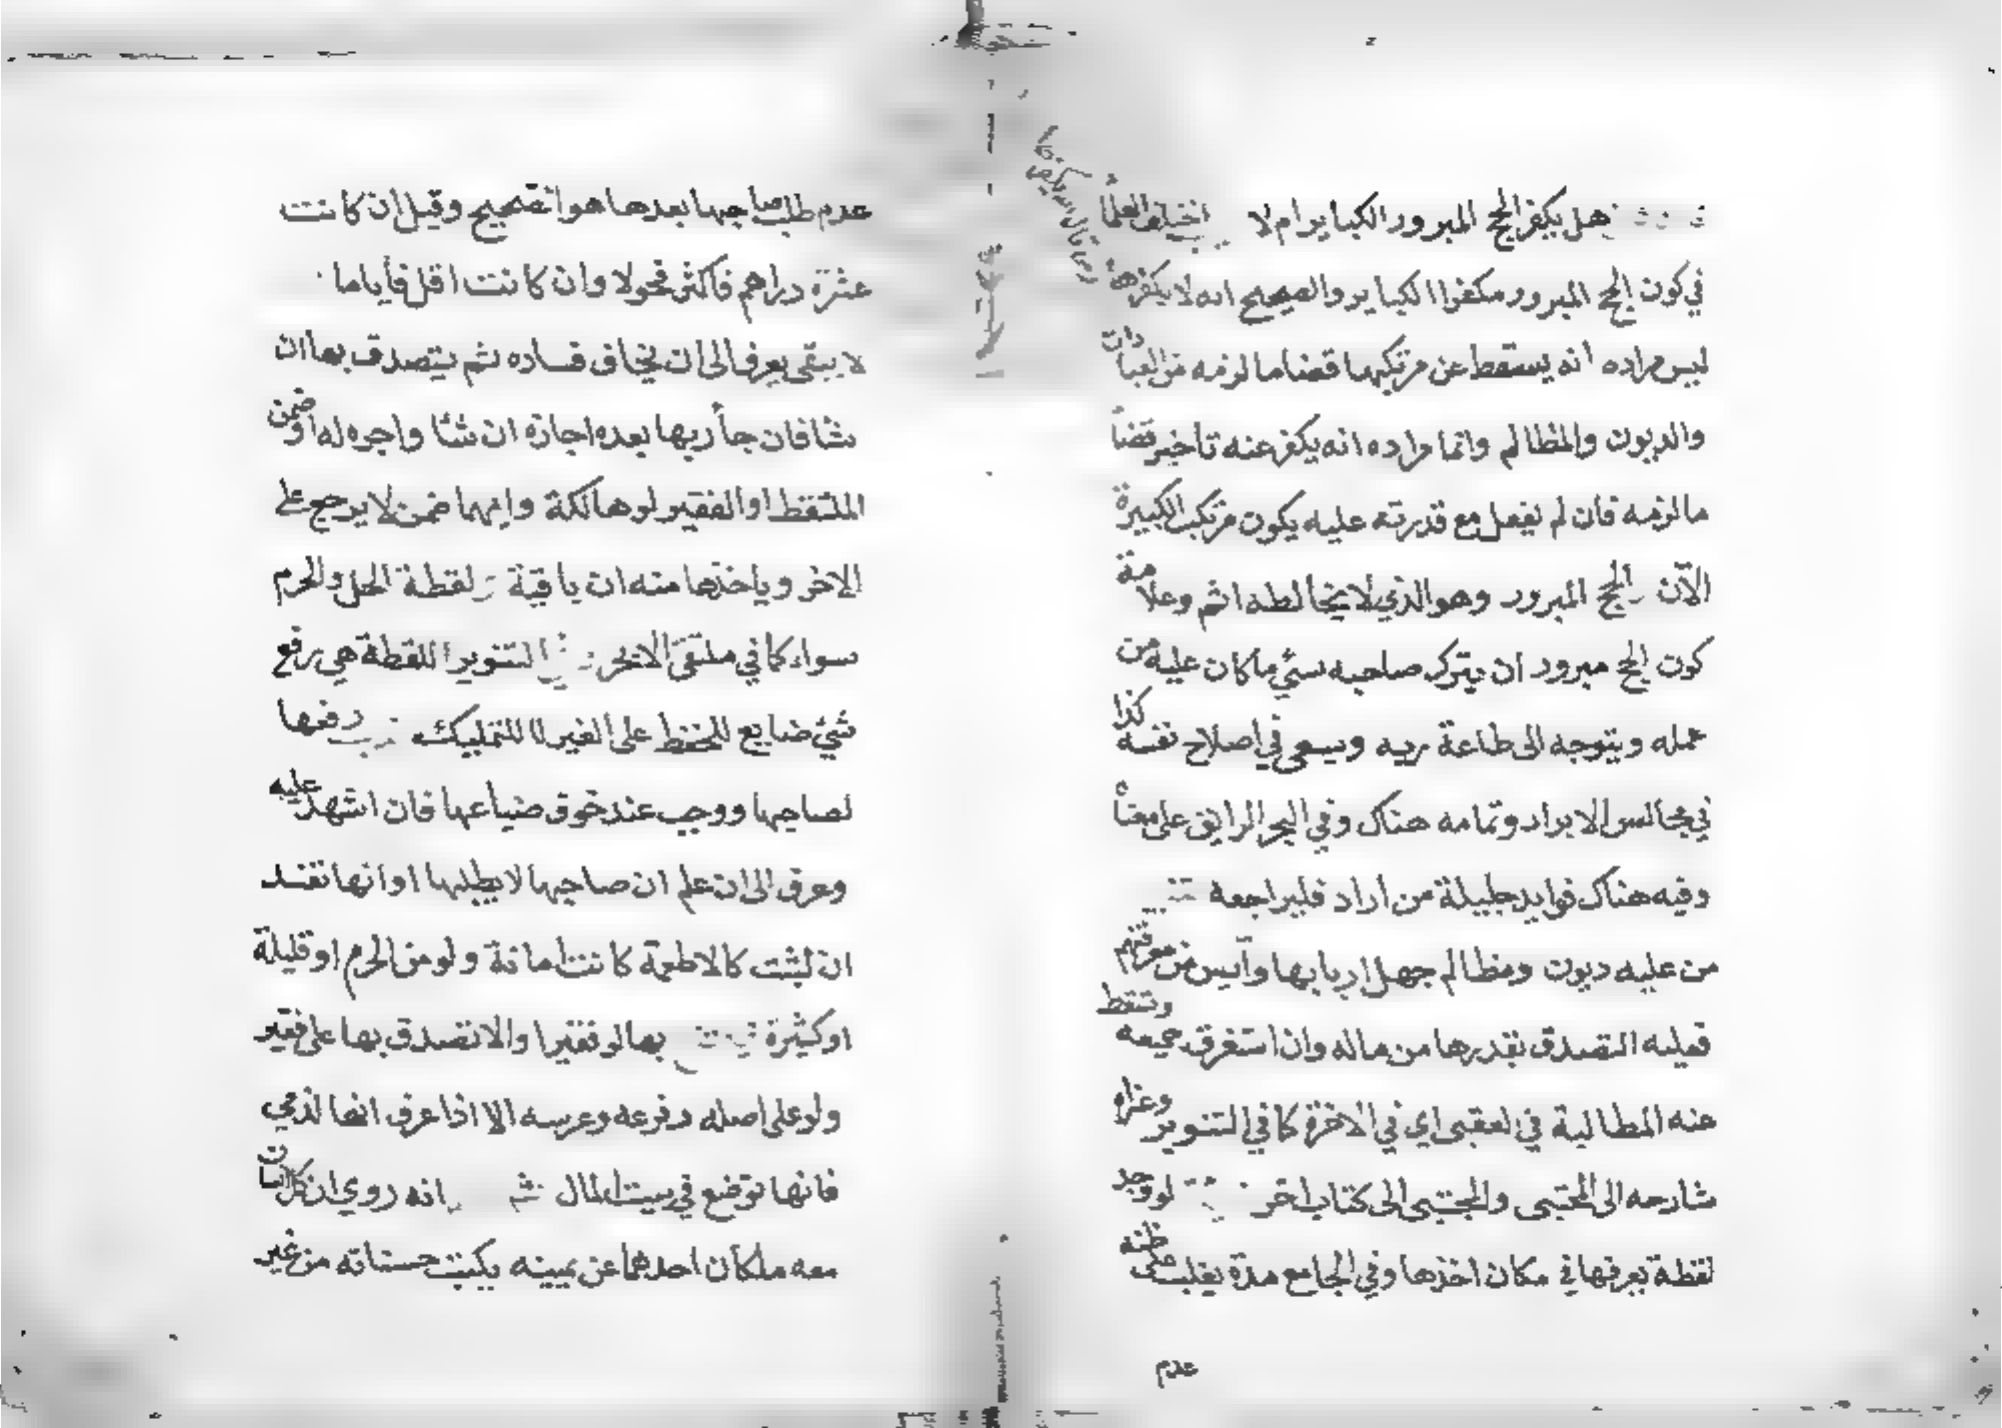 هل يكفر الحج المبرور الكباير ام لا اختلف العلماء
في كون الحج المبرور مكفرا الكباير والصحيح انه لا يكفرها
ومن قال انه يكفرها
ليس مراده انه يسقط عن مرتكبها قضا ما لزمه من العبادات
والديون والمظالم وانما مراده انه يكفر عنه تاخير قضا
ما لزمه فان لم يفعل مع قدرته عليه يكون مرتكب الكبيرة
الآن الحج المبرور وهو الذي لا يخالطه اثم وعلامة
كون الحج مبرور ان يترك صاحبه سئ ما كان عليه من
عمله ويتوجه الى طاعة ربه ويسعى في اصلاح نفسه كذا
في مجالس الابرار وتمامه هناك وفي البحر الرايق على معناه
وفيه هناك فوايد جليلة من اراد فليراجعه
من عليه ديون ومظالم جهل اربابها وآيس من معرفتهم
فعليه التصدق بقدرها من ماله وان استغرق جميعه وتسقط
عنه المطالبة في العقبى اي في الاخرة كما في التنوير وعزاه
شارحه الى المجتبى والمجتبى الى كتاب اخر لو وجد
لقطة يعرفها في مكان اخذها وفي الجامع مدة يغلب على ظنه
عدم
عدم طلب صاحبها بعدها هو الصحيح وقيل ان كانت
عشرة دراهم فاكثر فحولا وان كانت اقل فأياما
لا يبقى يعرف الى ان يخاف فساده ثم يتصدق بها ان
شا فان جا ربها بعده اجازه ان شا واجره له او ضمن
الملتقط او الفقير لو هالكة وايهما ضمن لا يرجع على
الاخر وياخذها منه ان باقية ولقطة الحل والحرم
سواء كما في ملتقى الابحر التنوير اللقطة هي رفع
شئ ضايع للحفظ على الغير لا للتمليك رفعها
لصاحبها ووجب عند خوف ضياعها فان اشهد عليه
وعرف الى ان علم ان صاحبها لا يطلبها او انها تفسد
ان بقيت كالاطعمة كانت امانة ولو من الحرم او قليلة
او كثيرة بها لو فقيرا والا تصدق بها على فقير
ولو على اصله وفرعه وعرسه الا اذا عرف انها لذمي
فانها توضع في بيت المال ثم انه روي ان كل انسان
معه ملكان احدهما عن يمينه يكتب حسناته من غير